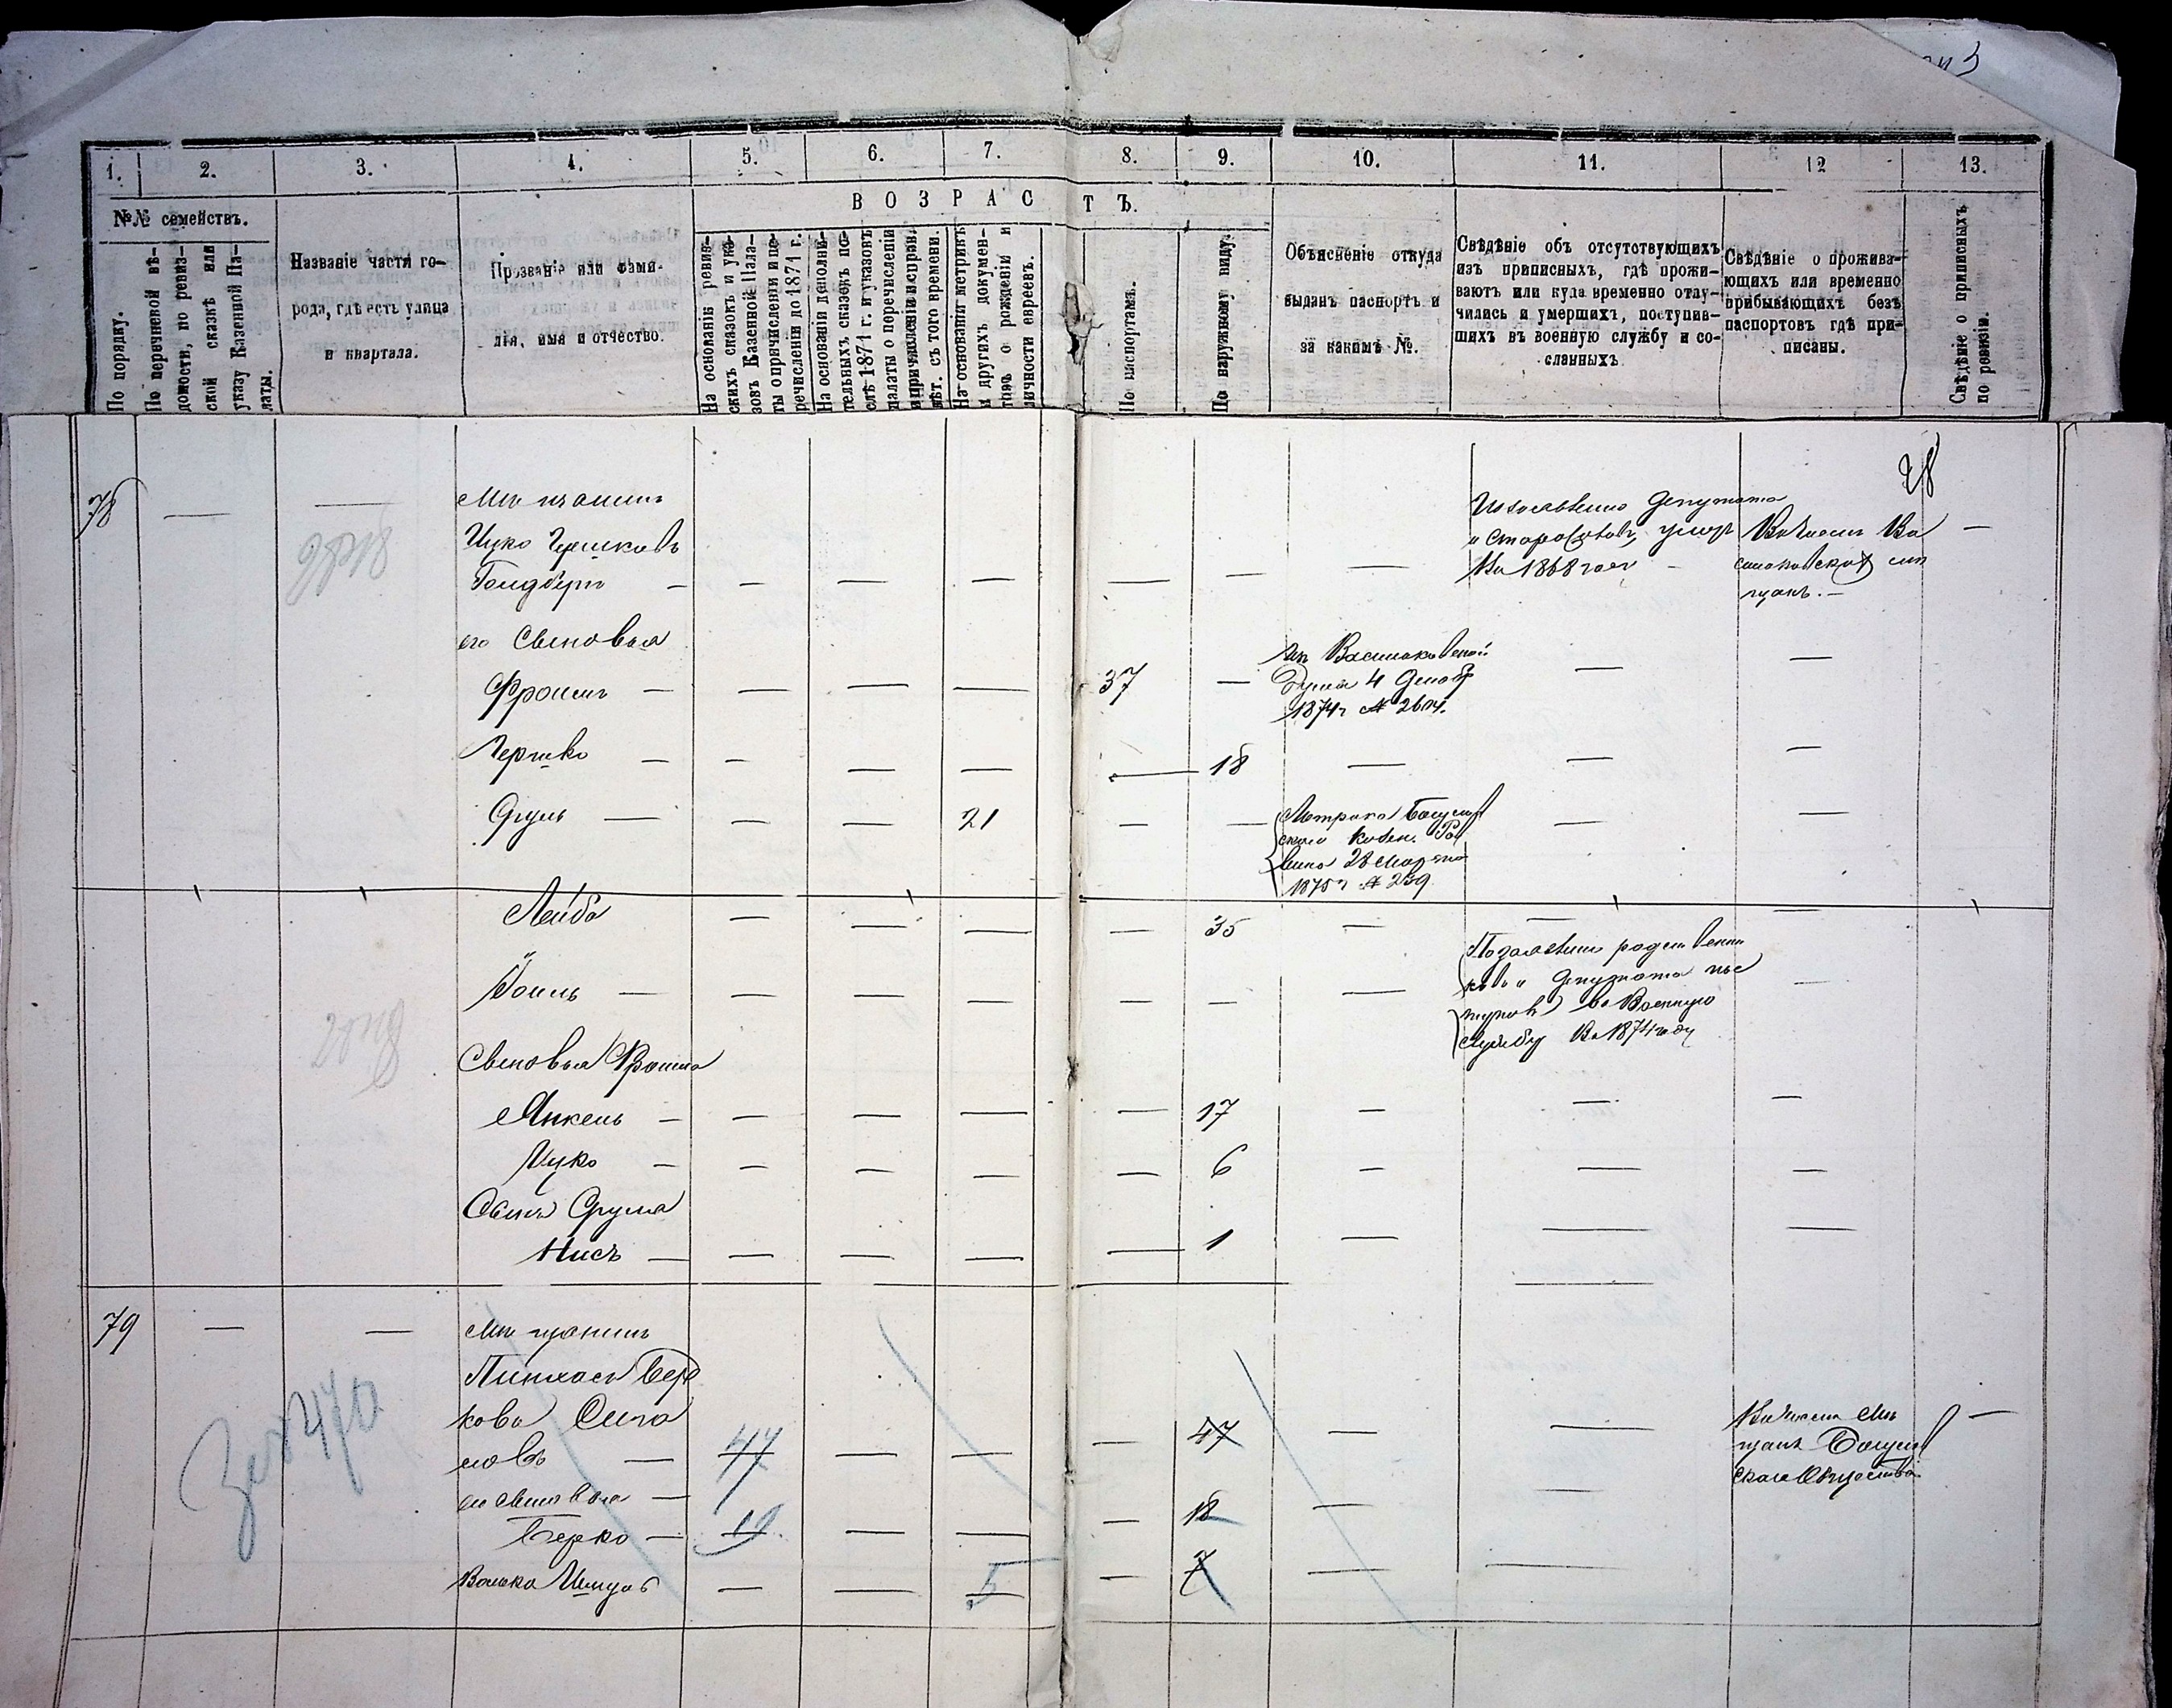 1.
2.
3.
4.
5.
6.
7.
8.
9.
10.
11.
12
13.
№№ семействъ.
В О З Р А С Т Ъ.
По порядку.
По перечневой вѣ-
домости, по ревиз-
ской сказкѣ или
указу Казенной Па-
латы.
Названіе части го-
рода, гдѣ есть улица
и квартала.
Прозваніе или фами-
лія, имя и отчество.
На основаніи ревиз-
скихъ сказокъ и ука-
зовъ Казенной Пала-
ты о причисленіи и пе-
речисленіи до 1871 г.
На основаніи дополни-
тельныхъ сказокъ по-
слѣ 1871 г. и указовъ
палаты о перечисленіи
лѣт. съ того времени.
На основаніи метрикъ
и другихъ докумен-
товъ о рожденіи и
личности евреевъ.
По паспортамъ.
По наружному виду.
Объясненіе откуда
выданъ паспортъ и
за какимъ №.
Свѣдѣніе объ отсутствующихъ
изъ приписныхъ, гдѣ прожи-
ваютъ или куда временно отлу-
чились и умершихъ, поступив-
шихъ въ военную службу и со-
сланныхъ
Свѣдѣніе о прожива-
ющихъ или временно
прибывающихъ безъ
паспортовъ гдѣ при-
писаны.
Свѣдѣніе о приписныхъ
по ревизіи.
28
78 — —
Мѣщанинъ
Ицко Гершковъ
Голдбергъ — — — — — — —
депутата
и старостовъ, умеръ
въ 1868 году
мѣ
щанъ. —
его Сыновья
Фроимъ — — — — 37 —
Изъ Васильковской
Думы 4 Декабр
1874 г № 2614.
Гершко — — — — — 18 — — —
Сруль — — — 21 — —
Метрика Богуслав
скаго Казен. Ра
вина 28 Марта
1875 г № 239
Лейба — — — — 35 — — —
Іоиль — — — — — — —
родственни
ковъ и Депутата пос
тупилъ въ Военную
службу въ 1874 году
Сыновья Фроима
Янкель — — — — — 17 — — —
Ицко — — — — — 6 — — —
Сынъ Сруля
Нисъ — — — — — 1 — — —
79 — —
Мѣщанинъ
Пинхасъ Бер
ковъ
новъ — 47 — — — 47 — —
мѣ
щанъ Богуслав
скаго Общества
его сыновья —
Берко — 19 — — — 18 — —
Волько Шмуль — — 5 — 7 — —